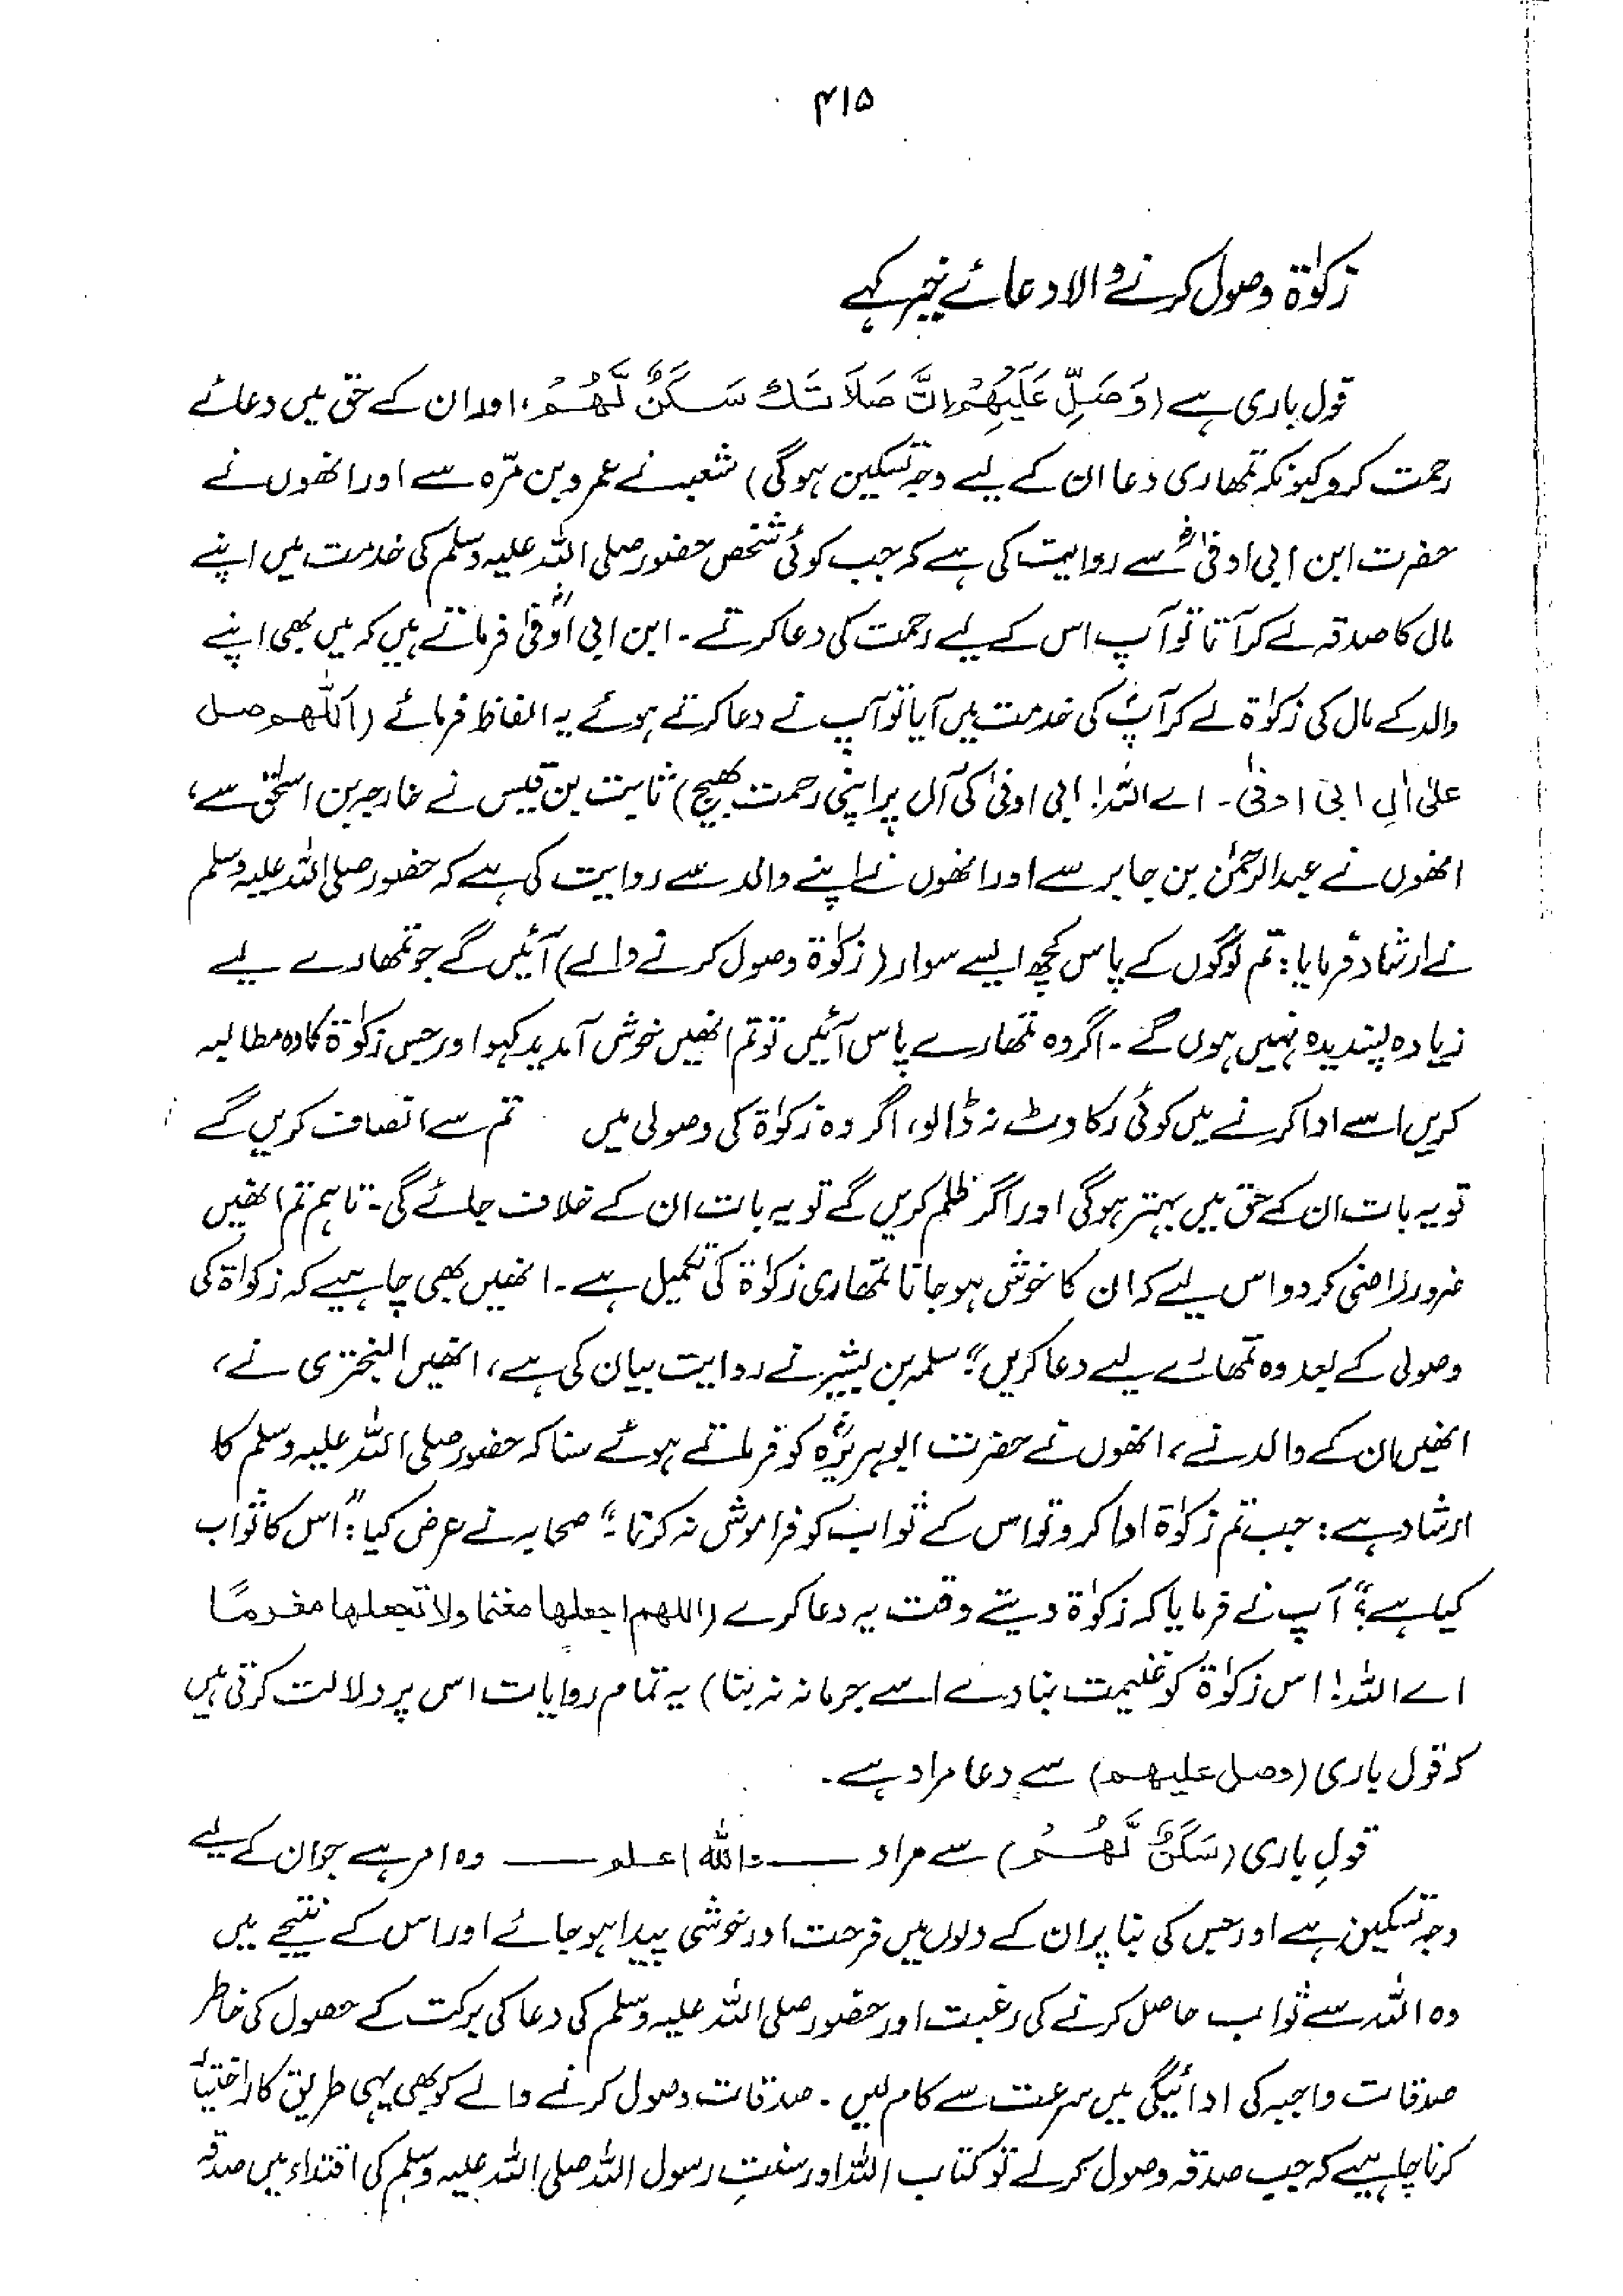 ۴۱۵
زکوٰۃ وصول کرنے والا دعائے خیر کہے
قول باری ہے (وَصَلِّ عَلَيْهِمْ اِنَّ صَلَاتَكَ سَكَنٌ لَّهُمْ، اور ان کے حق میں دعائے
رحمت کرو کیونکہ تمھاری دعا ان کے لیے وجہ تسکین ہوگی) شعبہ نے عمرو بن مرّہ سے اور انھوں نے
حضرت ابن ابی اوفیٰؓ سے روایت کی ہے کہ جب کوئی شخص حضور صلی اللہ علیہ وسلم کی خدمت میں اپنے
مال کا صدقہ لے کر آتا تو آپ اس کے لیے رحمت کی دعا کرتے۔ ابن ابی اوفیٰؓ فرماتے ہیں کہ میں بھی اپنے
والد کے مال کی زکوٰۃ لے کر آپؐ کی خدمت میں آیا تو آپ نے دعا کرتے ہوئے یہ الفاظ فرمائے (اَللّٰھم صل
علیٰ اٰلِ ابی اوفیٰ۔ اے اللہ! ابی اوفیٰ کی آل پر اپنی رحمت بھیج) ثابت بن قیس نے خارجہ بن اسحٰق سے،
انھوں نے عبدالرحمٰن بن جابر سے اور انھوں نے اپنے والد سے روایت کی ہے کہ حضور صلی اللہ علیہ وسلم
نے ارشاد فرمایا: تم لوگوں کے پاس کچھ ایسے سوار (زکوٰۃ وصول کرنے والے) آئیں گے جو تمھارے لیے
زیادہ پسندیدہ نہیں ہوں گے۔ اگر وہ تمھارے پاس آئیں تو تم انھیں خوش آمدید کہو اور جس زکوٰۃ کا وہ مطالبہ
کریں اسے ادا کرنے میں کوئی رکاوٹ نہ ڈالو، اگر وہ زکوٰۃ کی وصولی میں تم سے انصاف کریں گے
تو یہ بات ان کے حق میں بہتر ہوگی اور اگر ظلم کریں گے تو یہ بات ان کے خلاف جائے گی۔ تاہم تم انھیں
ضرور راضی کر دو اس لیے کہ ان کا خوش ہو جانا تمھاری زکوٰۃ کی تکمیل ہے۔ انھیں بھی چاہیے کہ زکوٰۃ کی
وصولی کے بعد وہ تمھارے لیے دعا کریں" سلمہ بن بشیر نے روایت بیان کی ہے، انھیں البختری نے،
انھیں ان کے والد نے، انھوں نے حضرت ابوہریرہؓ کو فرماتے ہوئے سنا کہ حضور صلی اللہ علیہ وسلم کا
ارشاد ہے: جب تم زکوٰۃ ادا کرو تو اس کے ثواب کو فراموش نہ کرنا۔" صحابہ نے عرض کیا: "اس کا ثواب
کیا ہے؟" آپ نے فرمایا کہ زکوٰۃ دیتے وقت یہ دعا کرے (اللھم اجعلھا مغنما ولا تجعلھا مغرمًا
اے اللہ! اس زکوٰۃ کو غنیمت بنا دے اسے جرمانہ نہ بنا) یہ تمام روایات اس پر دلالت کرتی ہیں
کہ قول باری (وصل علیھم) سے دعا مراد ہے۔
قولِ باری (سَكَنٌ لَّهُمْ) سے مراد — واللہ اعلم — وہ امر ہے جو ان کے لیے
وجہ تسکین ہے اور جس کی بنا پر ان کے دلوں میں فرحت اور خوشی پیدا ہو جائے اور اس کے نتیجے میں
وہ اللہ سے ثواب حاصل کرنے کی رغبت اور حضور صلی اللہ علیہ وسلم کی دعا کی برکت کے حصول کی خاطر
صدقات واجبہ کی ادائیگی میں سرعت سے کام لیں۔ صدقات وصول کرنے والے کو بھی یہی طریق کار اختیار
کرنا چاہیے کہ جب صدقہ وصول کرلے تو کتاب اللہ اور سنتِ رسول اللہ صلی اللہ علیہ وسلم کی اقتداء میں صدقہ